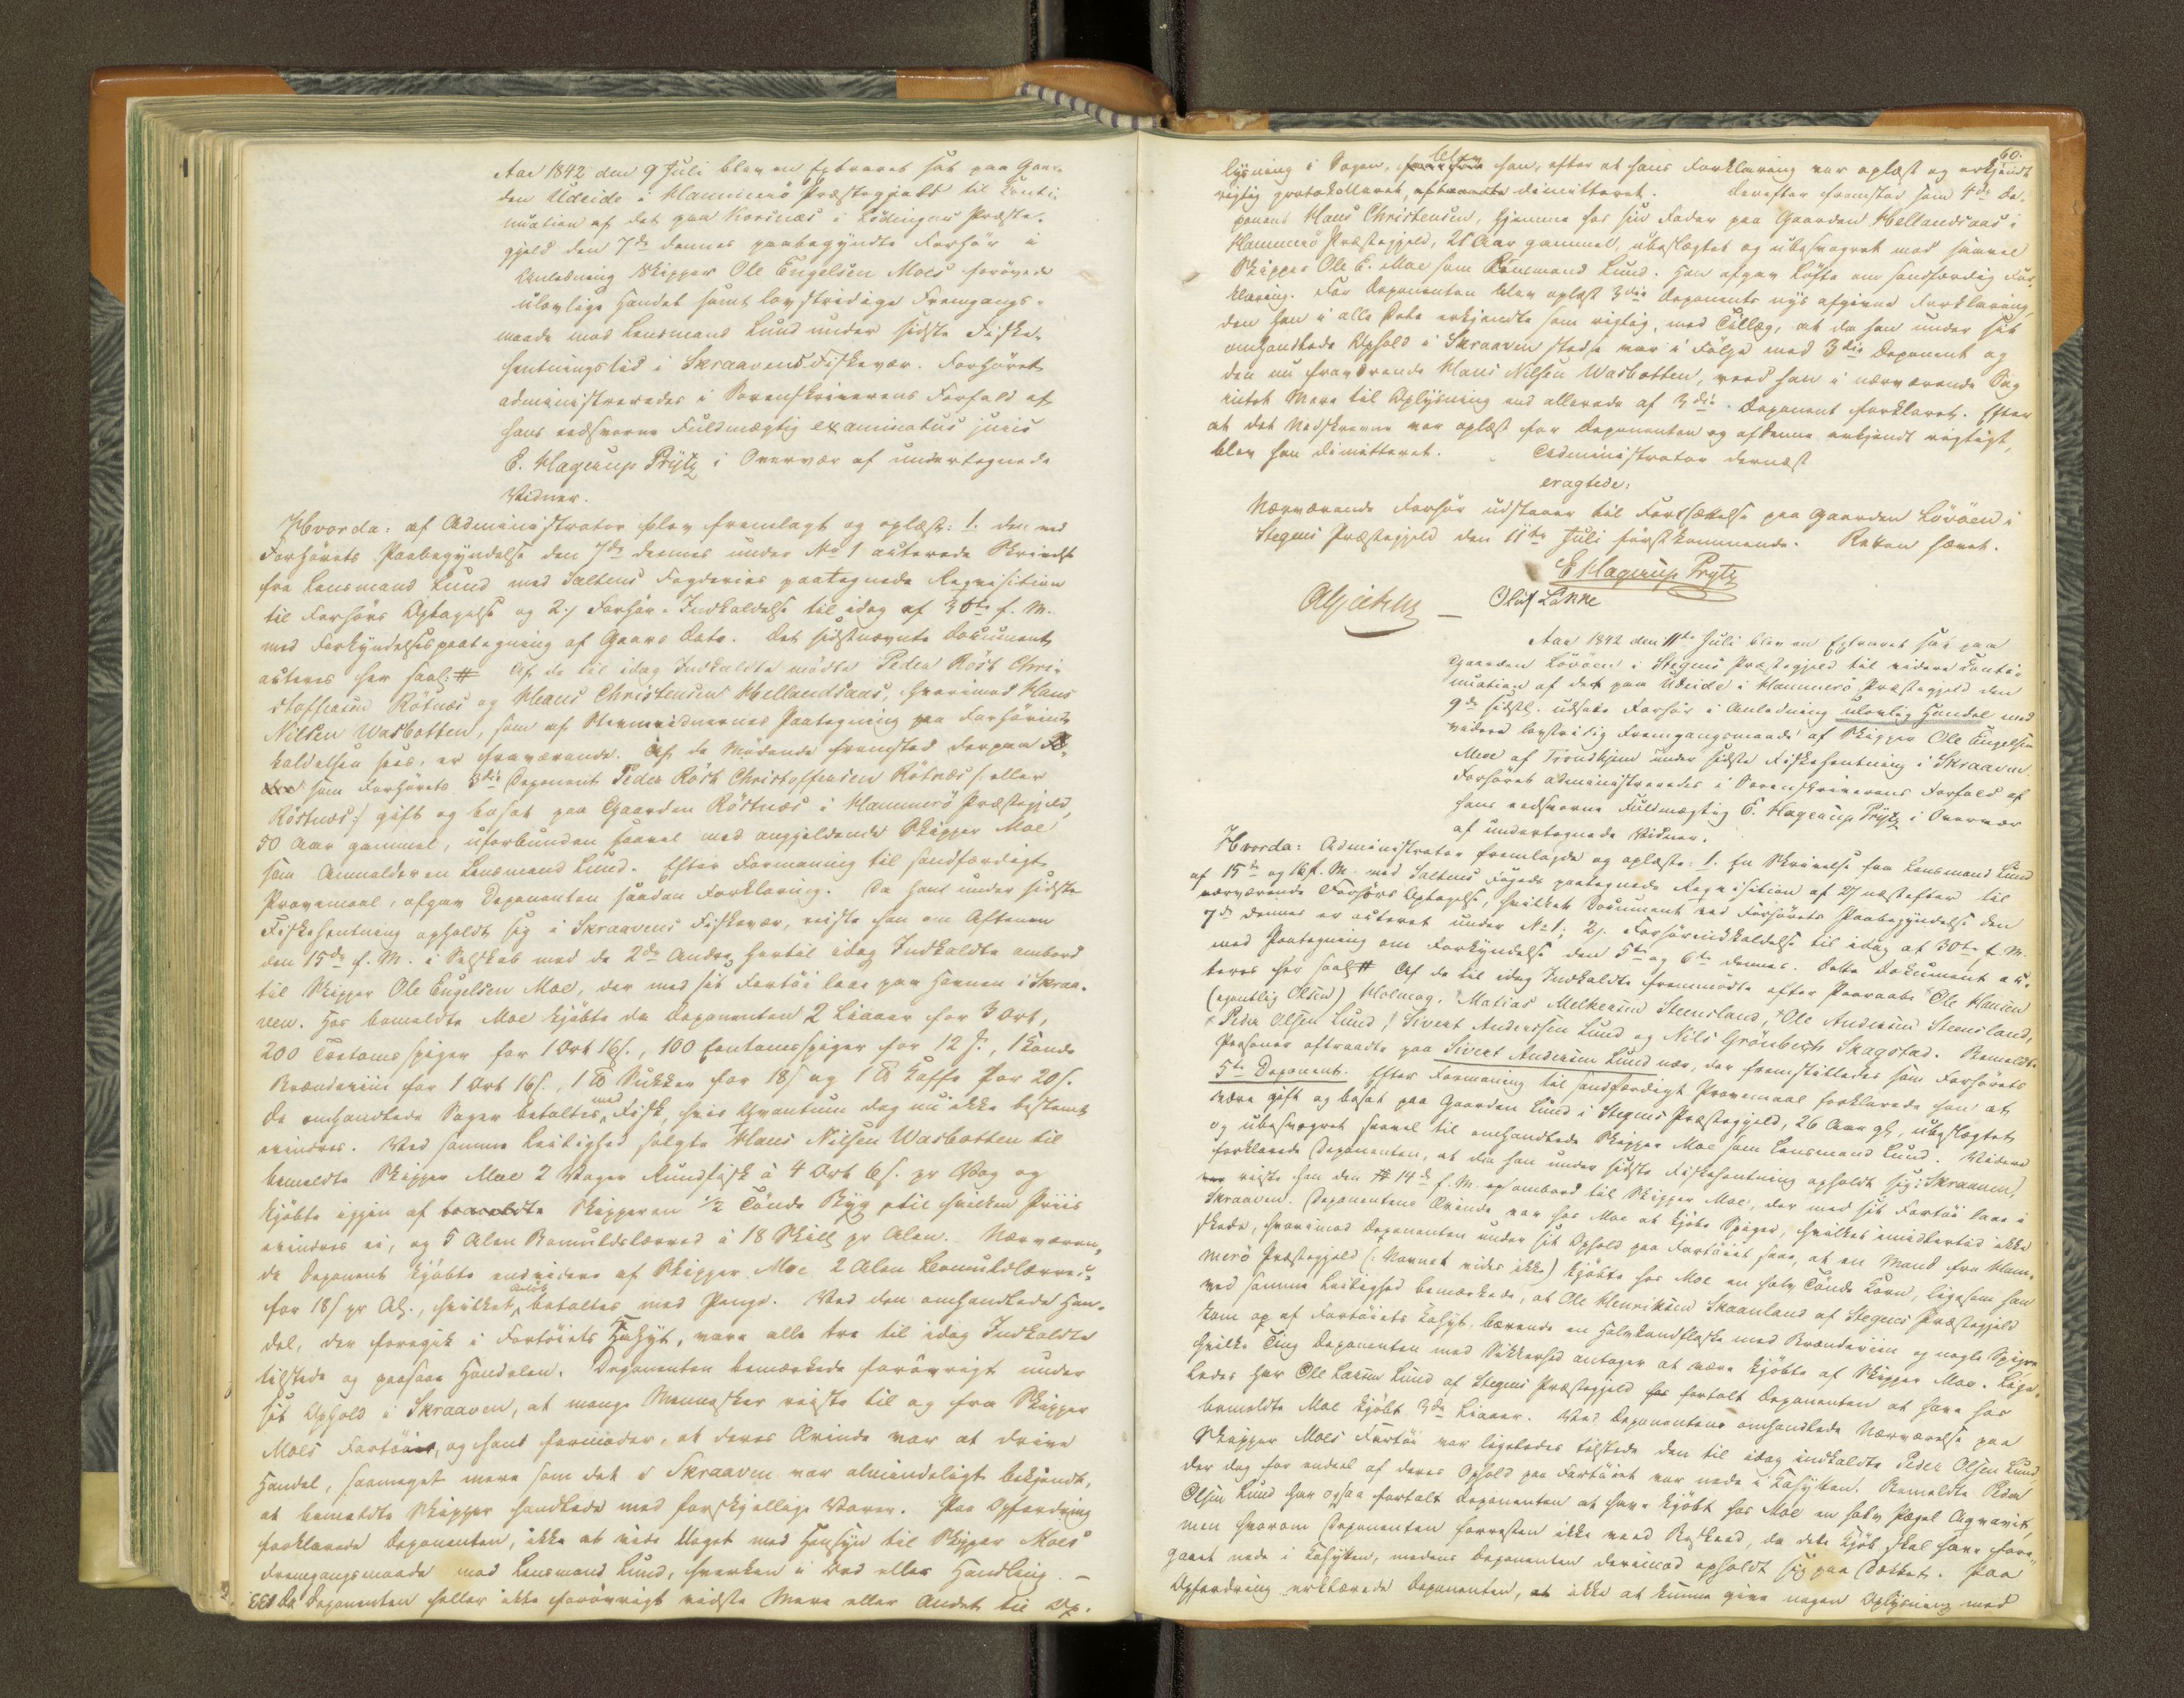 Aar 1842 den 9 Juli blev en Extraret sat paa Gaar-
den Udeide i Hammerö Præstegjeld til Conti-
nuation af det paa Korsnæs i Lödingens Præste-
gjeld den 7de dennes paabegyndte Forhör i
Anledning Skipper Ole Engelsen Moes forövede
ulovlige Handel samt lovstridige Fremgangs-
maade mod Lensmand Lund under sidste Fiske-
hentningstid i Skraavens Fiskevær. Forhöret
administreredes i Sorenskriverens Forfald af
hans eedsvorne Fuldmægtig examinatus juris
E. Hagerup Prÿtz i Overvær af undertegnede
Vidner.
Hvorda: af Administrator blev fremlagt og oplæst: 1. den ved
Forhörets Paabegyndelse den 7de dennes under No 1 acterede Skrivelse
fra Lensmand Lund med Saltens Fogderies paategnede Reqvisition
til Forhörs Optagelse og 2./ Forhörs-Indkaldelse til idag af 30te f. M.
med Forkyndelsespaategning af Gaars Dato. Det sidstnævnte Document
acteres her saal: # Af de til idag Indkaldte mödte Peder Röst Chri-
stoffersen Rötnæs og Hans Christensen Hellandsaas, hvorimod Hans
Nilsen Wasbotten, som af Stevnevidnernes Paategning paa Forhörsind-
kaldelsen sees, er fraværende. Af de Mödende fremstod derpaa
som Forhörets 3die Deponent Peder Röst Christoffersen Rötnæs (: eller
Röstnæs :) gift og bosat paa Gaarden Röstnæs i Hammerö Præstegjeld,
50 Aar gammel, uforbunden saavel med angjeldende Skipper Moe
som Anmelderen Lensmand Lund. Efter Formaning til sandfærdigt
Provemaal, afgav Deponenten saadan Forklaring. Da han under sidste
Fiskehentning opholdt sig i Skraavens Fiskevær, reiste han om Aftenen
den 15de f. M. i Selskab med de 2de Andre hertil idag Indkaldte ombord
til Skipper Ole Engelsen Moe, der med sit Fartöi laae paa Havnen i Skraa-
ven. Hos bemeldte Moe kjöbte da Deponenten 2 Liaaer for 3 Ort,
200 Toetomsspiger for 1 Ort 16 s., 100 Eentomsspiger for 12 s., 1 Kande
Brændeviin for 1 Ort 16 s., 1 ℔ Sukker for 18 s og 1 ℔ Kaffe for 20 s.
De omhandlede Sager betaltes med Fisk, hvis Qvantum dog nu ikke bestemt
erindres. Ved samme Leilighed solgte Hans Nilsen Wasbotten til
bemeldte Skipper Moe 2 Voger Rundfisk à 4 Ort 6 s. pr Vog og
kjöbte igjen af bemeldte Skipperen 1/2 Tönde Byg, til hvilken Priis
erindres ei, og 5 Alen Bomuldslærred à 18 Skill pr Alen. Nærværen-
de Deponent kjöbte endvidere af Skipper Moe 2 Alen Bomuldlærred
for 18 s pr Al., hvilket betaltes med Penge. Ved den omhandlede Han-
del, der foregik i Fartöiets Kahyt, vare alle tre til idag Indkaldte
tilstede og paasaae Handelen. Deponenten bemærkede forövrigt under
sit Ophold i Skraaven, at mange Mennesker reiste til og fra Skipper
Moes Fartöi, og han formoder, at deres Ærinde var at drive
Handel, saameget mere som det i Skraaven var almindeligt bekjendt,
at bemeldte Skipper handlede med forskjellige Varer. Paa Opfordring
forklarede Deponenten, ikke at vide Noget med Hensyn til Skipper Moes
Fremgangsmaade mod Lensmand Lund, hverken i Ord eller Handling. —
Da Deponenten heller ikke forövrigt vidste Mere eller Andet til Op-
60.
lysning i Sagen, blev han, efter at hans Forklaring var oplæst og erkjendt
rigtig protokolleret, dimitteret. Derefter fremstod som 4de De-
ponent Hans Christensen, hjemme hos sin Fader paa Gaarden Hellandsaas i
Hammerö Præstegjeld, 21 Aar gammel, ubeslægtet og ubesvogret med saavel
Skipper Ole E. Moe som Lensmand Lund. Han afgav Löfte om sandfærdig For-
klaring. For Deponenten blev oplæst 3die Deponents nys afgivne Forklaring,
den han i alle Dele erkjendte som rigtig, med Tillæg, at da han under sit
omhandlede Ophold i Skraaven stedse var i Fölge med 3die Deponent og
den nu fraværende Hans Nilsen Wasbotten, veed han i nærværende Sag
intet Mere til Oplysning end allerede af 3die Deponent forklaret. Efter
at det Nedskrevne var oplæst for Deponenten og af denne erkjendt rigtigt,
blev han dimitteret. Administrator dernæst
eragtede:
Nærværende Forhör udstaaer til Fortsættelse paa Gaarden Lövöen i
Stegens Præstegjeld den 11te Juli förstkommende. Retten hævet.
E Hagerup Prytz
Oluf Løkke
Aar 1842 den 11te Juli blev en Extraret sat paa
Gaarden Lövöen i Stegens Præstegjeld til videre Conti-
nuation af det paa Udeide i Hammerö Præstegjeld den
9de sidstl. udsatte Forhör i Anledning ulovlig Handel med
videre lovstridig Fremgangsmaade af Skipper Ole Engelsen
Moe af Trondhjem under sidste Fiskehentning i Skraaven.
Forhöret administreredes i Sorenskriverens Forfald af
hans eedsvorne Fuldmægtig E. Hagerup Prÿtz i Overvær
af undertegnede Vidner.
Hvorda: Administrator fremlagde og oplæste: 1. En Skrivelse fra Lensmand Lund
af 15de og 16 f. M. med Saltens Fogeds paategnede Reqvisition af 27 næstefter til
nærværende Forhörs Optagelse, hvilket Document ved Forhörets Paabegyndelse den
7de dennes er acteret under No 1; 2). Forhörsindkaldelse til idag af 30te f. M.
med Paategning om Forkyndelse den 5te og 6te dennes. Dette Dokument ac-
teres her saal # Af de til idag Indkaldte fremmödte efter Paaraab Ole Hansen
(egentlig Olsen) Holmog, Matias Melkersen Steensland, Ole Andersen Steensland,
Peder Olsen Lund, Sivert Anderssen Lund og Nils Grönbech Skagstad. Bemeldte
Personer aftraadte paa Sivert Andersen Lund nær, der fremstilledes som Forhörets
5te Deponent. Efter Formaning til sandfærdigt Provemaal forklarede han at
være gift og bosat paa Gaarden Lund i Stegens Præstegjeld, 26 Aar gl, ubeslægtet
og ubesvogret saavel til omhandlede Skipper Moe som Lensmand Lund. Videre
forklarede Deponenten, at da han under sidste Fiskehentning opholdt sig i Skraaven,
reiste han den 14de f. M. ombord til Skipper Moe, der med sit Fartöi laae i
Skraaven. Deponentens Ærinde var hos Moe at kjöbe Spiger, hvilket imidlertid ikke
skede, hvorimod Deponenten under sit Ophold paa Fartöiet saae, at en Mand fra Ham-
merö Præstegjeld (: Navnet vides ikke) kjöbte hos Moe en halv Tönde Korn, ligesom han
ved samme Leilighed bemærkede, at Ole Henriksen Skaanland af Stegens Præstegjeld
kom op af Fartöiets Kahyt, bærende en Halvkandflaske med Brændeviin og nogle Spiger
hvilke Ting Deponenten med Sikkerhed antager at være kjöbte af Skipper Moe. Lige-
ledes har Ole Larsen Lund af Stegens Præstegjeld fortalt Deponenten at have hos
bemeldte Moe kjöbt 3de Liaaer. Ved Deponentens omhandlede Nærværelse paa
Skipper Moes Fartöi var ligeledes tilstede den til idag indkaldte Peder Olsen Lund,
der dog for endeel af deres Ophold paa Fartöiet var nede i Kahytten. Bemeldte Peder
Olsen Lund har ogsaa fortalt Deponenten at have kjöbt hos Moe en halv Pægel Aqvavit,
men hvorom Deponenten forresten ikke veed Beskeed, da dette Kjöb skal have fore-
gaaet nede i Kahytten, medens Deponenten derimod opholdt sig paa Dækket. Paa
Opfordring erklærede Deponenten, ikke at kunne give nogen Oplysning med